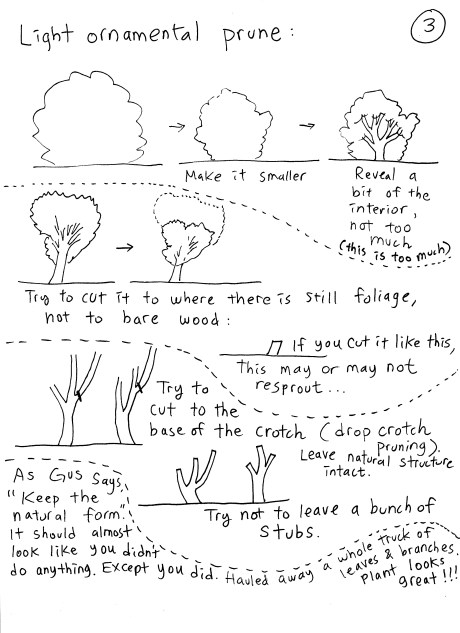 Light ornamental prune:
3
Make it smaller
Reveal a
bit of the
interior,
not too
much
(this is too much)
Try to cut it to where there is still foliage,
not to bare wood:
If you cut it like this,
this may or may not
resprout...
Try to
cut to the
base of the crotch (drop crotch
pruning).
Leave natural structure
intact.
Try not to leave a bunch of
stubs.
As Gus says,
"Keep the
natural form."
It should almost
look like you didn't
do anything. Except you did. Hauled away a whole truck of
leaves & branches.
Plant looks
great!!!